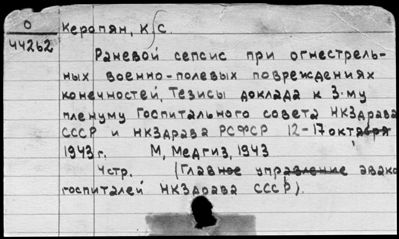 О
44262
Керопян, К. С.
Раневой сепсис при огнестрель-
ных военно-полевых повреждениях
конечностей, Тезисы доклада к 3-му
пленуму Госпитального совета НКЗдрава
СССР и НКЗдрава РСФСР 12-17 октября
1943 г. М, Медгиз, 1943
4стр. (Главное управление эвако
госпиталей НКЗдрава СССР).